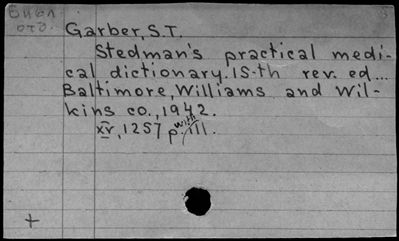 Garber, S.T.
Stedman's practical medi-
cal dictionary. 15-th rev. ed...
Baltimore, Williams and Wil-
kins co., 1942.
xv, 1257 p. with ill.